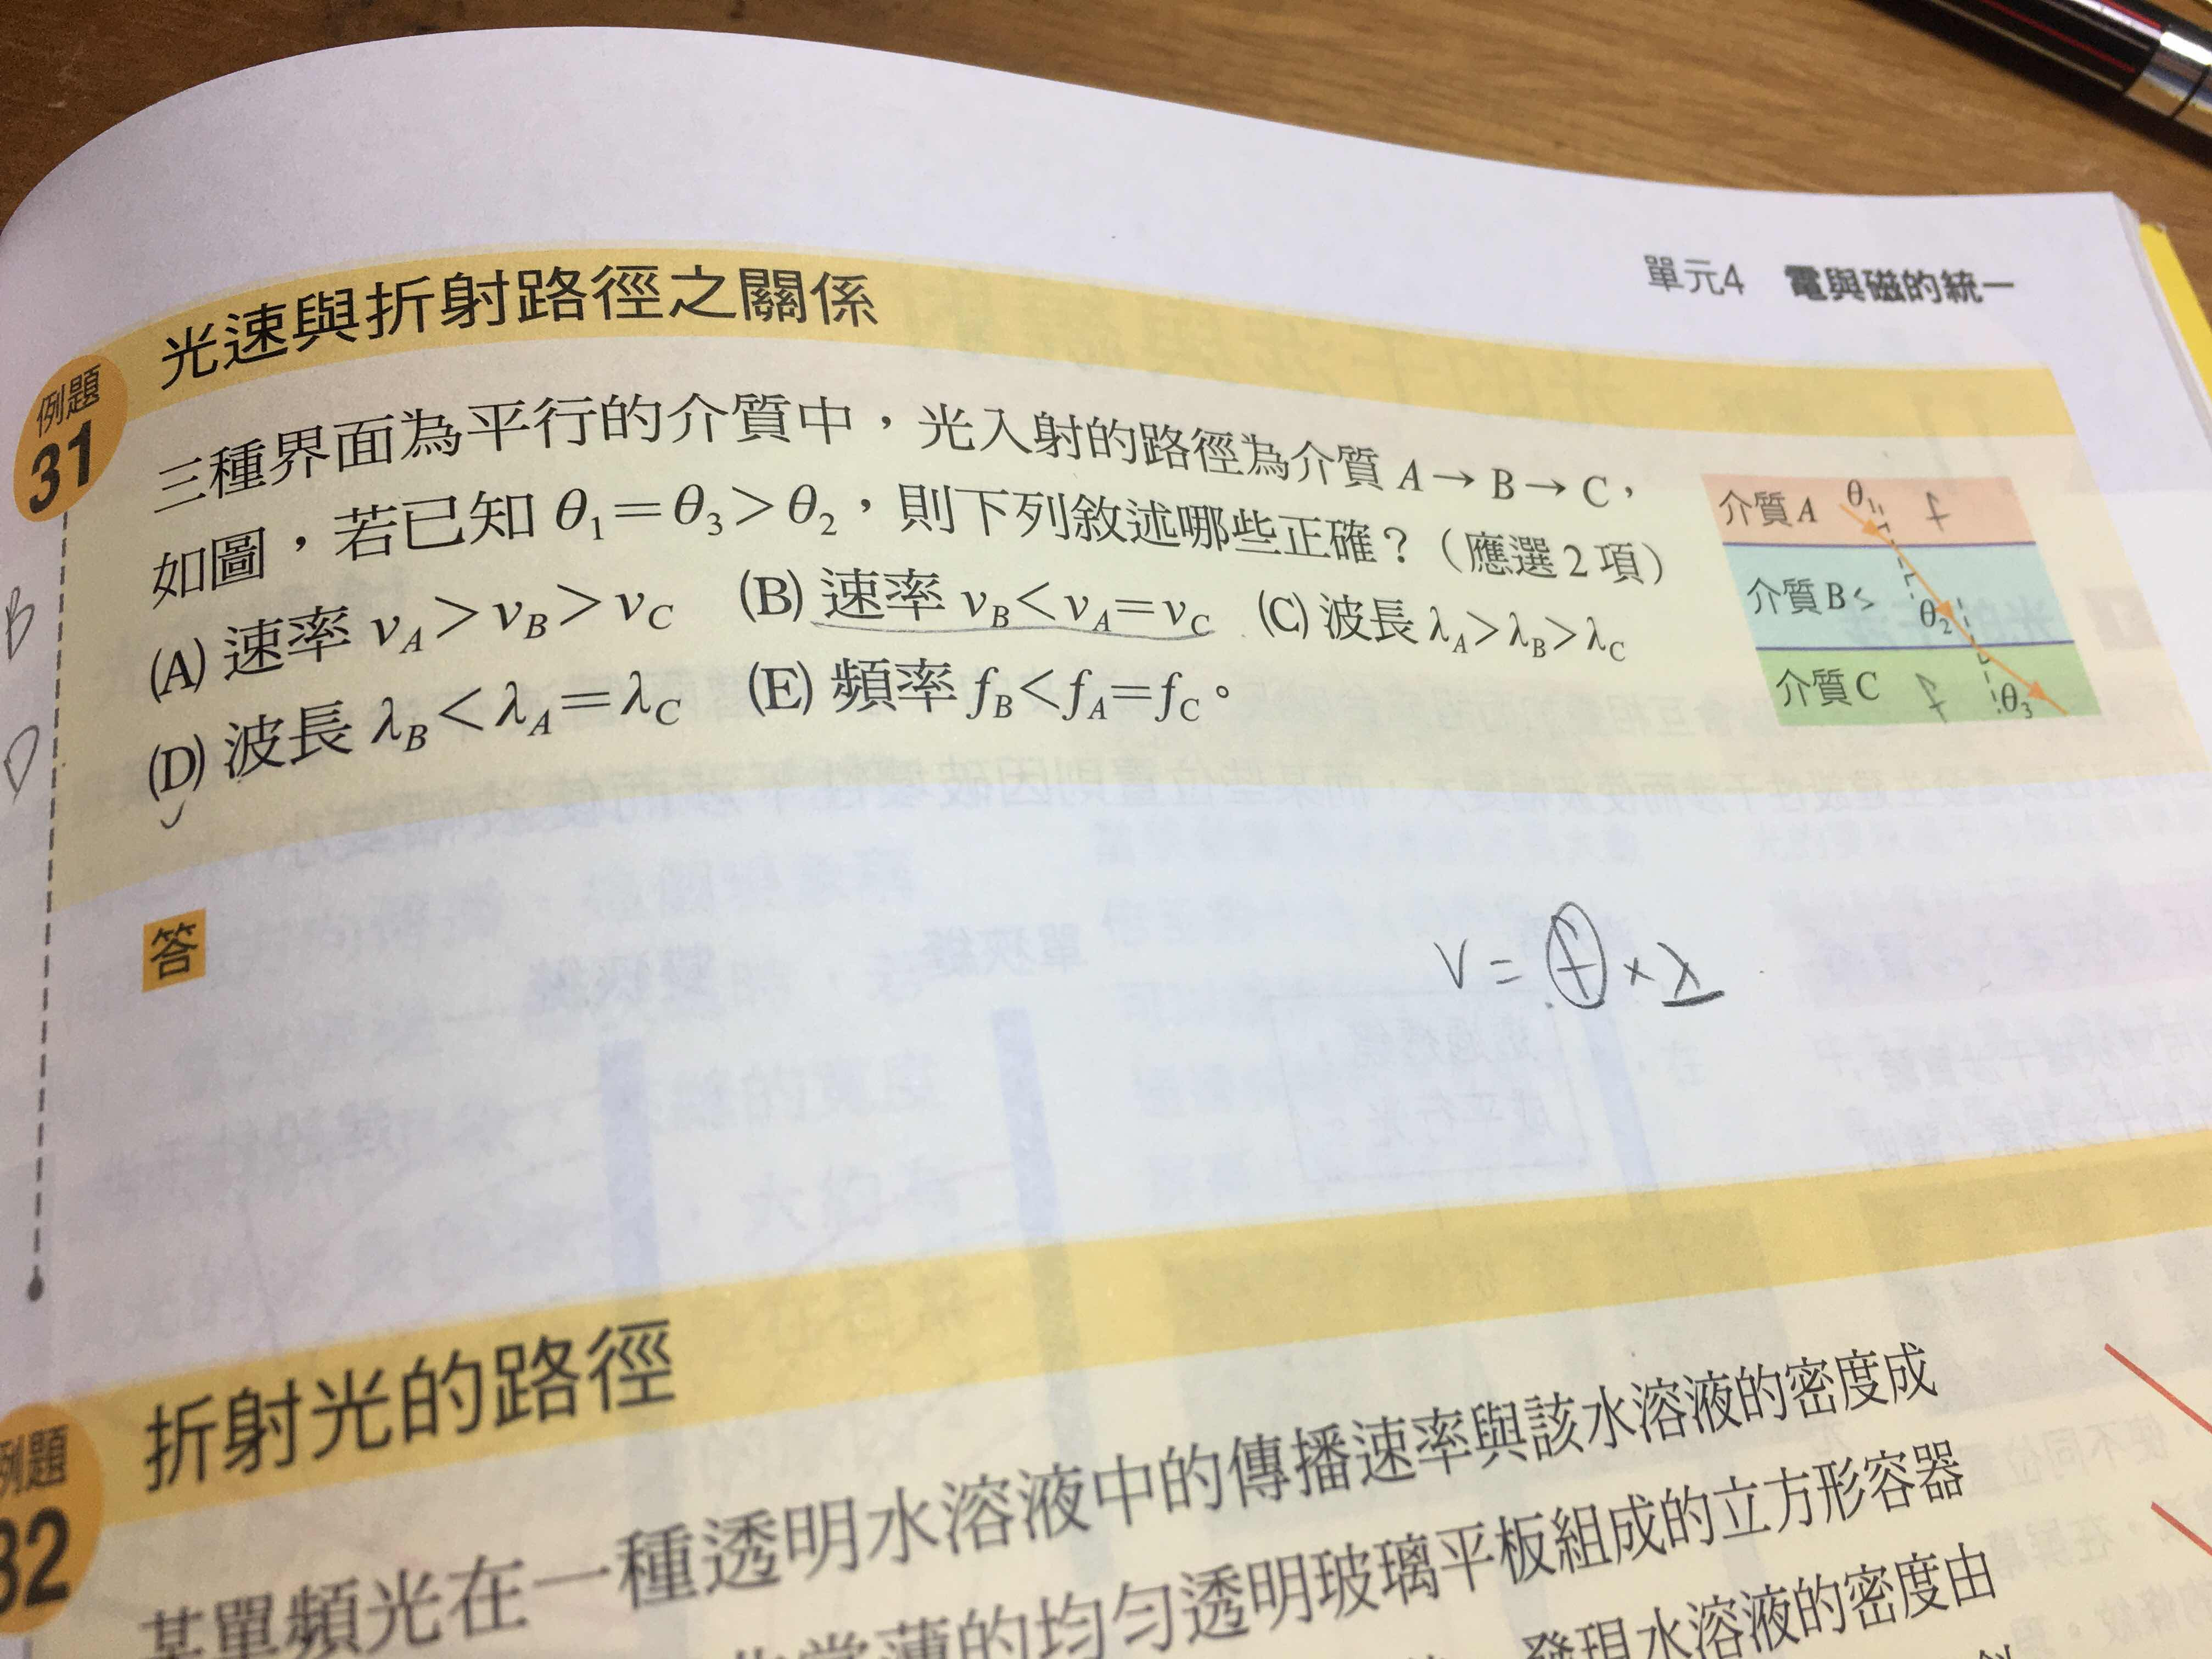 單元4 電與磁的統一
光速與折射路徑之關係
例題
31
三種界面為平行的介質中，光入射的路徑為介質 A→B→C，
如圖，若已知 θ₁=θ₃>θ₂，則下列敘述哪些正確？（應選2項）
(A) 速率 vA>vB>vC (B) 速率 vB<vA=vC (C) 波長 λA>λB>λC
(D) 波長 λB<λA=λC (E) 頻率 fB<fA=fC。
介質A θ₁ f
介質B θ₂
介質C f θ₃
B
D
答
v = f × λ
折射光的路徑
例題
32
某單頻光在一種透明水溶液中的傳播速率與該水溶液的密度成
薄的均勻透明玻璃平板組成的立方形容器
發現水溶液的密度由